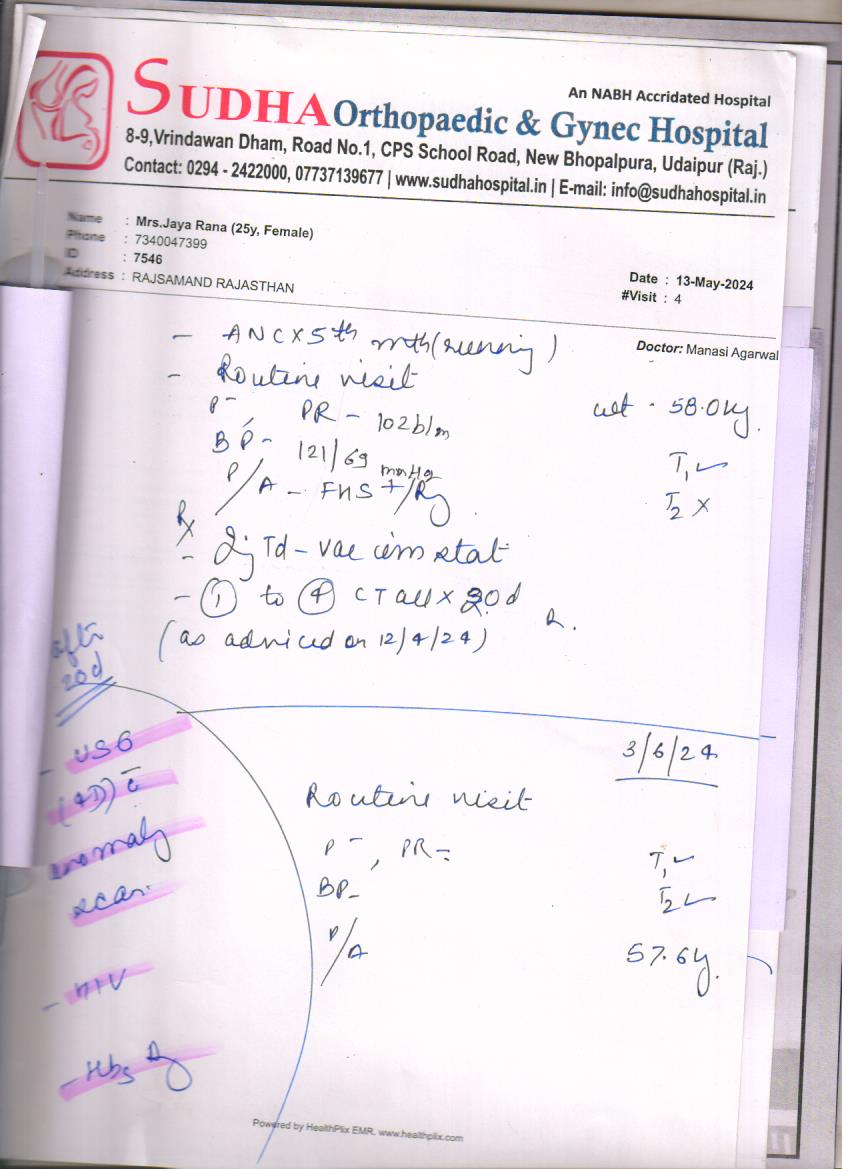 An NABH Accridated Hospital
SUDHA Orthopaedic & Gynec Hospital
8-9,Vrindawan Dham, Road No.1, CPS School Road, New Bhopalpura, Udaipur (Raj.)
Contact: 0294 - 2422000, 07737139677 | www.sudhahospital.in | E-mail: info@sudhahospital.in
Name : Mrs.Jaya Rana (25y, Female)
Phone : 7340047399
ID : 7546
Address : RAJSAMAND RAJASTHAN
Date : 13-May-2024
#Visit : 4
Doctor: Manasi Agarwal
- ANC X 5th mth (running)
- Routine visit
P-, PR - 102 b/m
wt - 58.0 kg.
BP- 121/69 mmHg
T1 ✓
P/A - FHS +/Rg
T2 X
Rx
- Inj Td - vac im stat
- ① to ④ CT all x 20d
(as adviced on 12/4/24)
after
20d
- USG
(4D) c̄
anomaly
scan
- HIV
- Hbs Ag
3/6/24
Routine visit
P-, PR-
T1 ✓
BP-
T2 ✓
P/A
57.6 kg.
Powered by HealthPlix EMR. www.healthplix.com